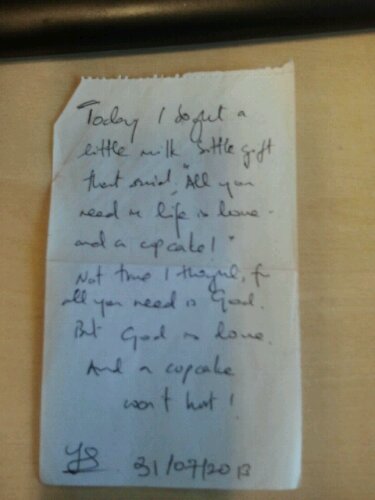 Today I bought a
little milk bottle gift
that said, "All you
need in life is love -
and a cupcake!"
Not true I thought, for
all you need is God.
But God is love.
And a cupcake
won't hurt!
31/07/2013